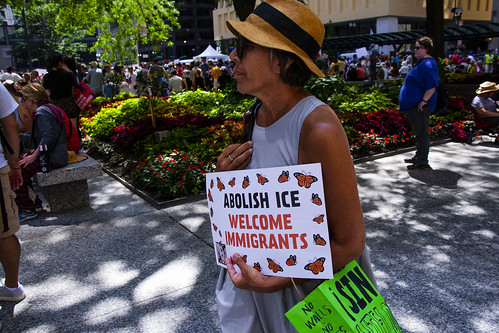 ABOLISH ICE
WELCOME
IMMIGRANTS
NO
WALLS
NO
SIN